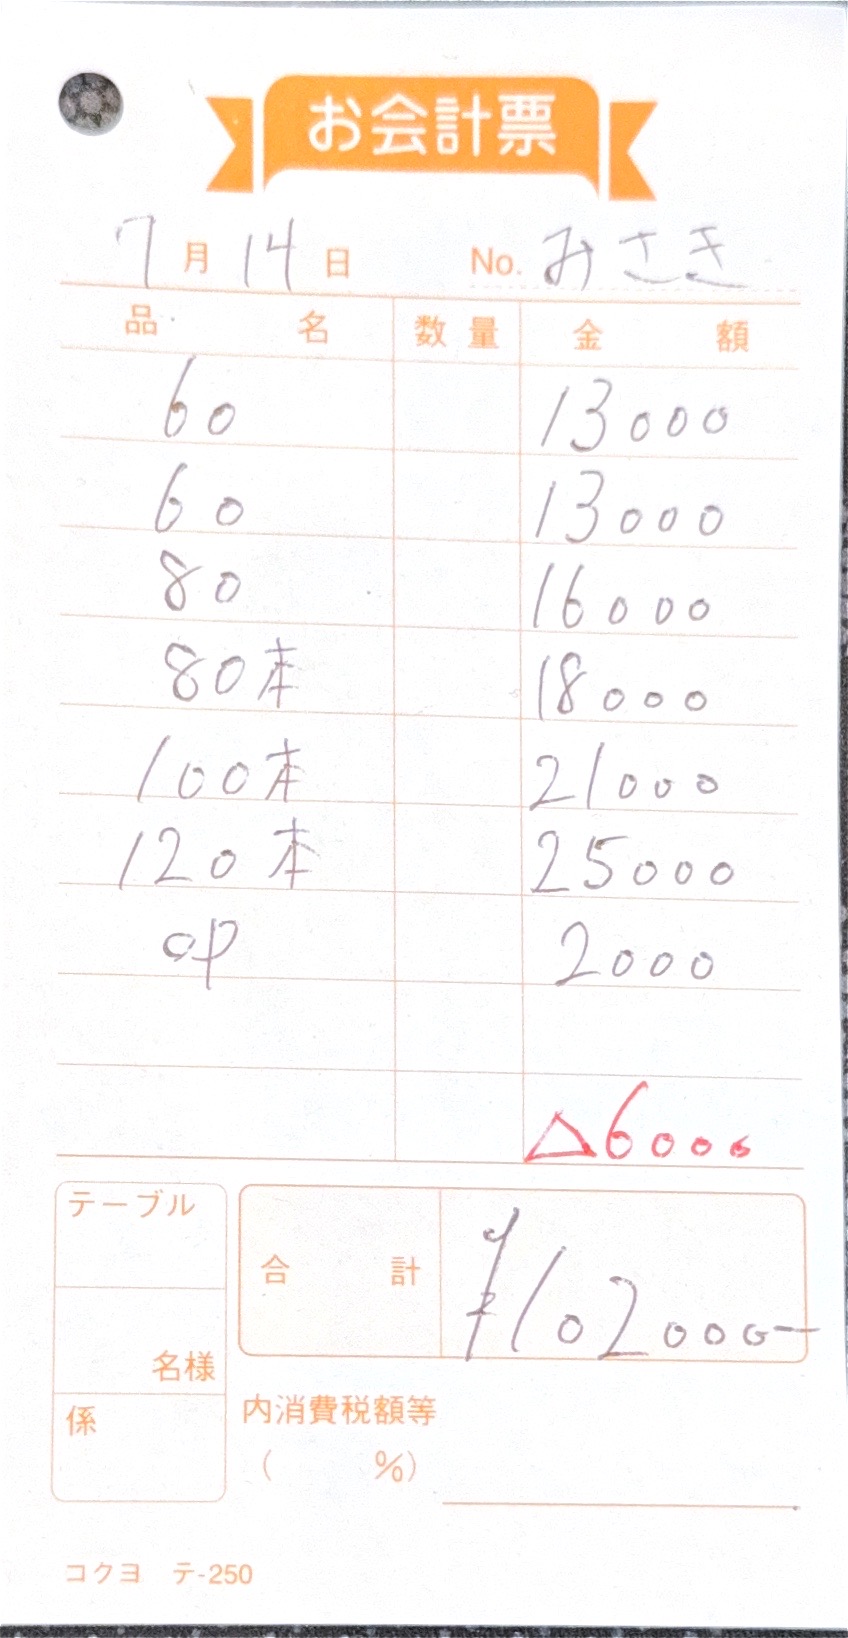 お会計票
7月14日 No. みさき
品名 数量 金額
60 13000
60 13000
80 16000
80本 18000
100本 21000
120本 25000
op 2000
△6000
テーブル
合計 ¥102000-
名様
係
内消費税額等
( %)
コクヨ テ-250